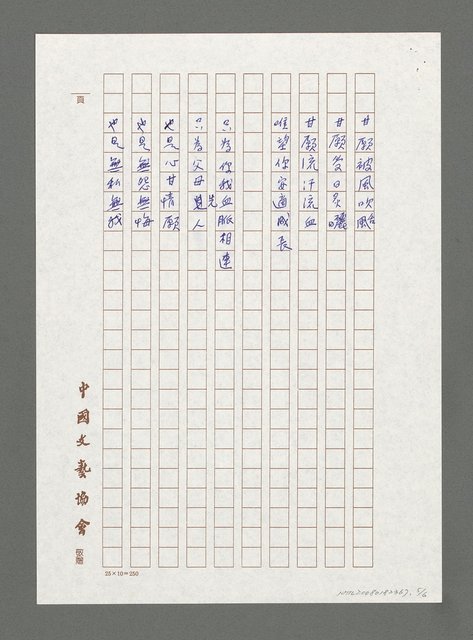 甘願被風吹颱
甘願受日炙曬
甘願流汗流血
唯望你安適成長
只為你我血脈相連
只為父母先人
也是心甘情願
也是無怨無悔
也是無私無我
頁
中國文藝協會 敬贈
25×10=250
5/6